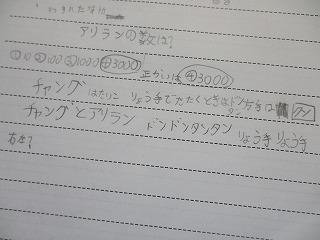 アリランの数は?
①10②100③1000④3000 正かいは④3000
チャングはたいこ りょう手でたたくときは
チャングとアリラン ドンドンタンタン りょう手りょう手
右左?